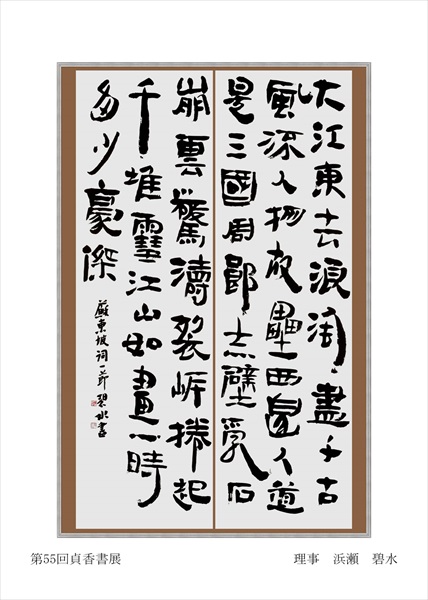 大江東去浪淘盡千古
風流人物故壘西邊人道
是三國周郎赤壁亂石
崩雲驚濤裂岸捲起
千堆雪江山如畫一時
多少豪傑
蘇東坡詞一節 碧水書
第55回貞香書展
理事 浜瀬 碧水